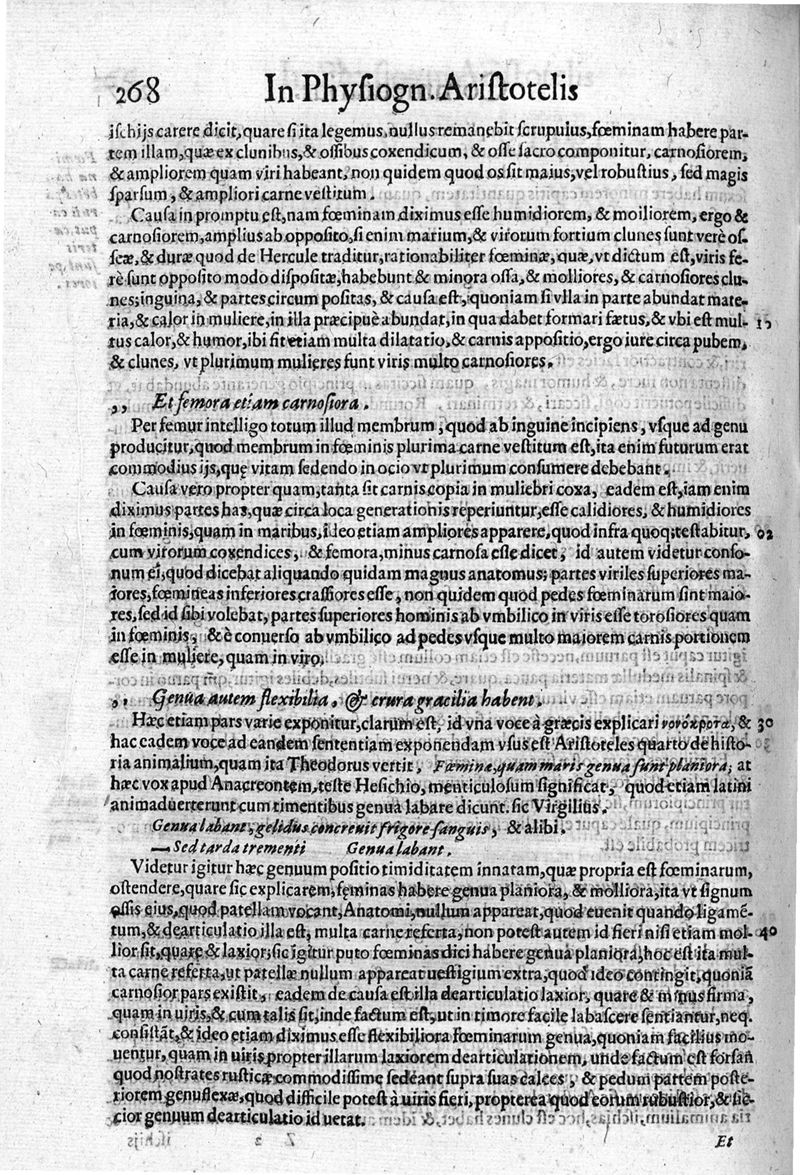 268 In Physiogn. Aristotelis
ischijs carere dicit, quare si ita legemus, nullus remanebit scrupulus, fœminam habere par-
tem illam, quæ ex clunibus, & ossibus coxendicum, & osse sacro componitur, carnosiorem,
& ampliorem quam viri habeant, non quidem quod os sit maius, vel robustius, sed magis
sparsum, & ampliori carne vestitum.
Causa in promptu est, nam fœminam diximus esse humidiorem, & molliorem, ergo &
carnosiorem, amplius ab opposito, si enim marium, & virorum fortium clunes sunt verè os-
seæ, & duræ quod de Hercule traditur, rationabiliter fœminæ, quæ, vt dictum est, viris fe-
rè sunt opposito modo dispositæ, habebunt & minora ossa, & molliores, & carnosiores clu-
nes; inguina, & partes circum positas, & causa est, quoniam si vlla in parte abundat mate-
ria, & calor in muliere, in illa præcipuè abundat, in qua dabet formari fætus, & vbi est mul- 10
tus calor, & humor, ibi fit etiam multa dilatatio, & carnis appositio, ergo iure circa pubem,
& clunes, vt plurimum mulieres sunt viris multo carnosiores.
,, Et femora etiam carnosiora.
Per femur intelligo totum illud membrum, quod ab inguine incipiens, vsque ad genu
producitur, quod membrum in fœminis plurima carne vestitum est, ita enim futurum erat
commodius ijs, quę vitam sedendo in ocio vt plurimum consumere debebant.
Causa vero propter quam, tanta sit carnis copia in muliebri coxa, eadem est, iam enim
diximus partes has, quæ circa loca generationis reperiuntur, esse calidiores, & humidiores
in fœminis, quam in maribus, ideo etiam ampliores apparere, quod infra quoq; testabitur, 02
cum virorum coxendices, & femora, minus carnosa esse dicet, id autem videtur conso-
num ei, quod dicebat aliquando quidam magnus anatomus; partes viriles superiores ma-
iores, fœmineas inferiores crassiores esse, non quidem quod pedes fœminarum sint maio-
res, sed id sibi volebat, partes superiores hominis ab vmbilico in viris esse torosiores quam
in fœminis, & è conuerso ab vmbilico ad pedes vsque multo maiorem carnis portionem
esse in muliere, quam in viro.
,, Genua autem flexibilia, & crura gracilia habent.
Hæc etiam pars varie exponitur, clarum est, id vna voce à græcis explicari &  30
hac eadem voce ad eandem sententiam exponendam vsus est Aristoteles quarto de histo-
ria animalium, quam ita Theodorus vertit, Fœminæ, quam maris genua sunt planiora; at
hæc vox apud Anacreontem, teste Hesichio, menticulosum significat, quod etiam latini
animaduerterunt cum timentibus genua labare dicunt. sic Virgilius.
Genua labant, gelidus concreuit frigore sanguis, & alibi.
— Sed tarda trementi Genua labant.
Videtur igitur hæc genuum positio timiditatem innatam, quæ propria est fœminarum,
ostendere, quare sic explicarem, fęminas habere genua planiora, & molliora, ita vt signum
ossis eius, quod patellam vocant, Anatomi, nullum appareat, quod euenit quando ligamẽ-
tum, & dearticulatio illa est, multa carne referta, non potest autem id fieri nisi etiam mol- 40
lior sit, quare & laxior; sic igitur puto fœminas dici habere genua planiora, hoc est ita mul-
ta carne referta, ut patellæ nullum appareat uestigium extra, quod ideo contingit, quoniã
carnosior pars existit, eadem de causa est illa dearticulatio laxior, quare & minus firma,
quam in uiris, & cum talis sit, inde factum est, ut in timore facile labascere sentiantur, neq.
consistãt, & ideo etiam diximus esse flexibiliora fœminarum genua, quoniam facilius mo-
uentur, quam in uiris propter illarum laxiorem dearticulationem, unde factum est forsan
quod nostrates rusticæ commodissime sedeant supra suas calces, & pedum partem poste-
riorem genuflexæ, quod difficile potest à uiris fieri, propterea quod eorum robustior, & sic-
cior genuum dearticulatio id uetat.
Et